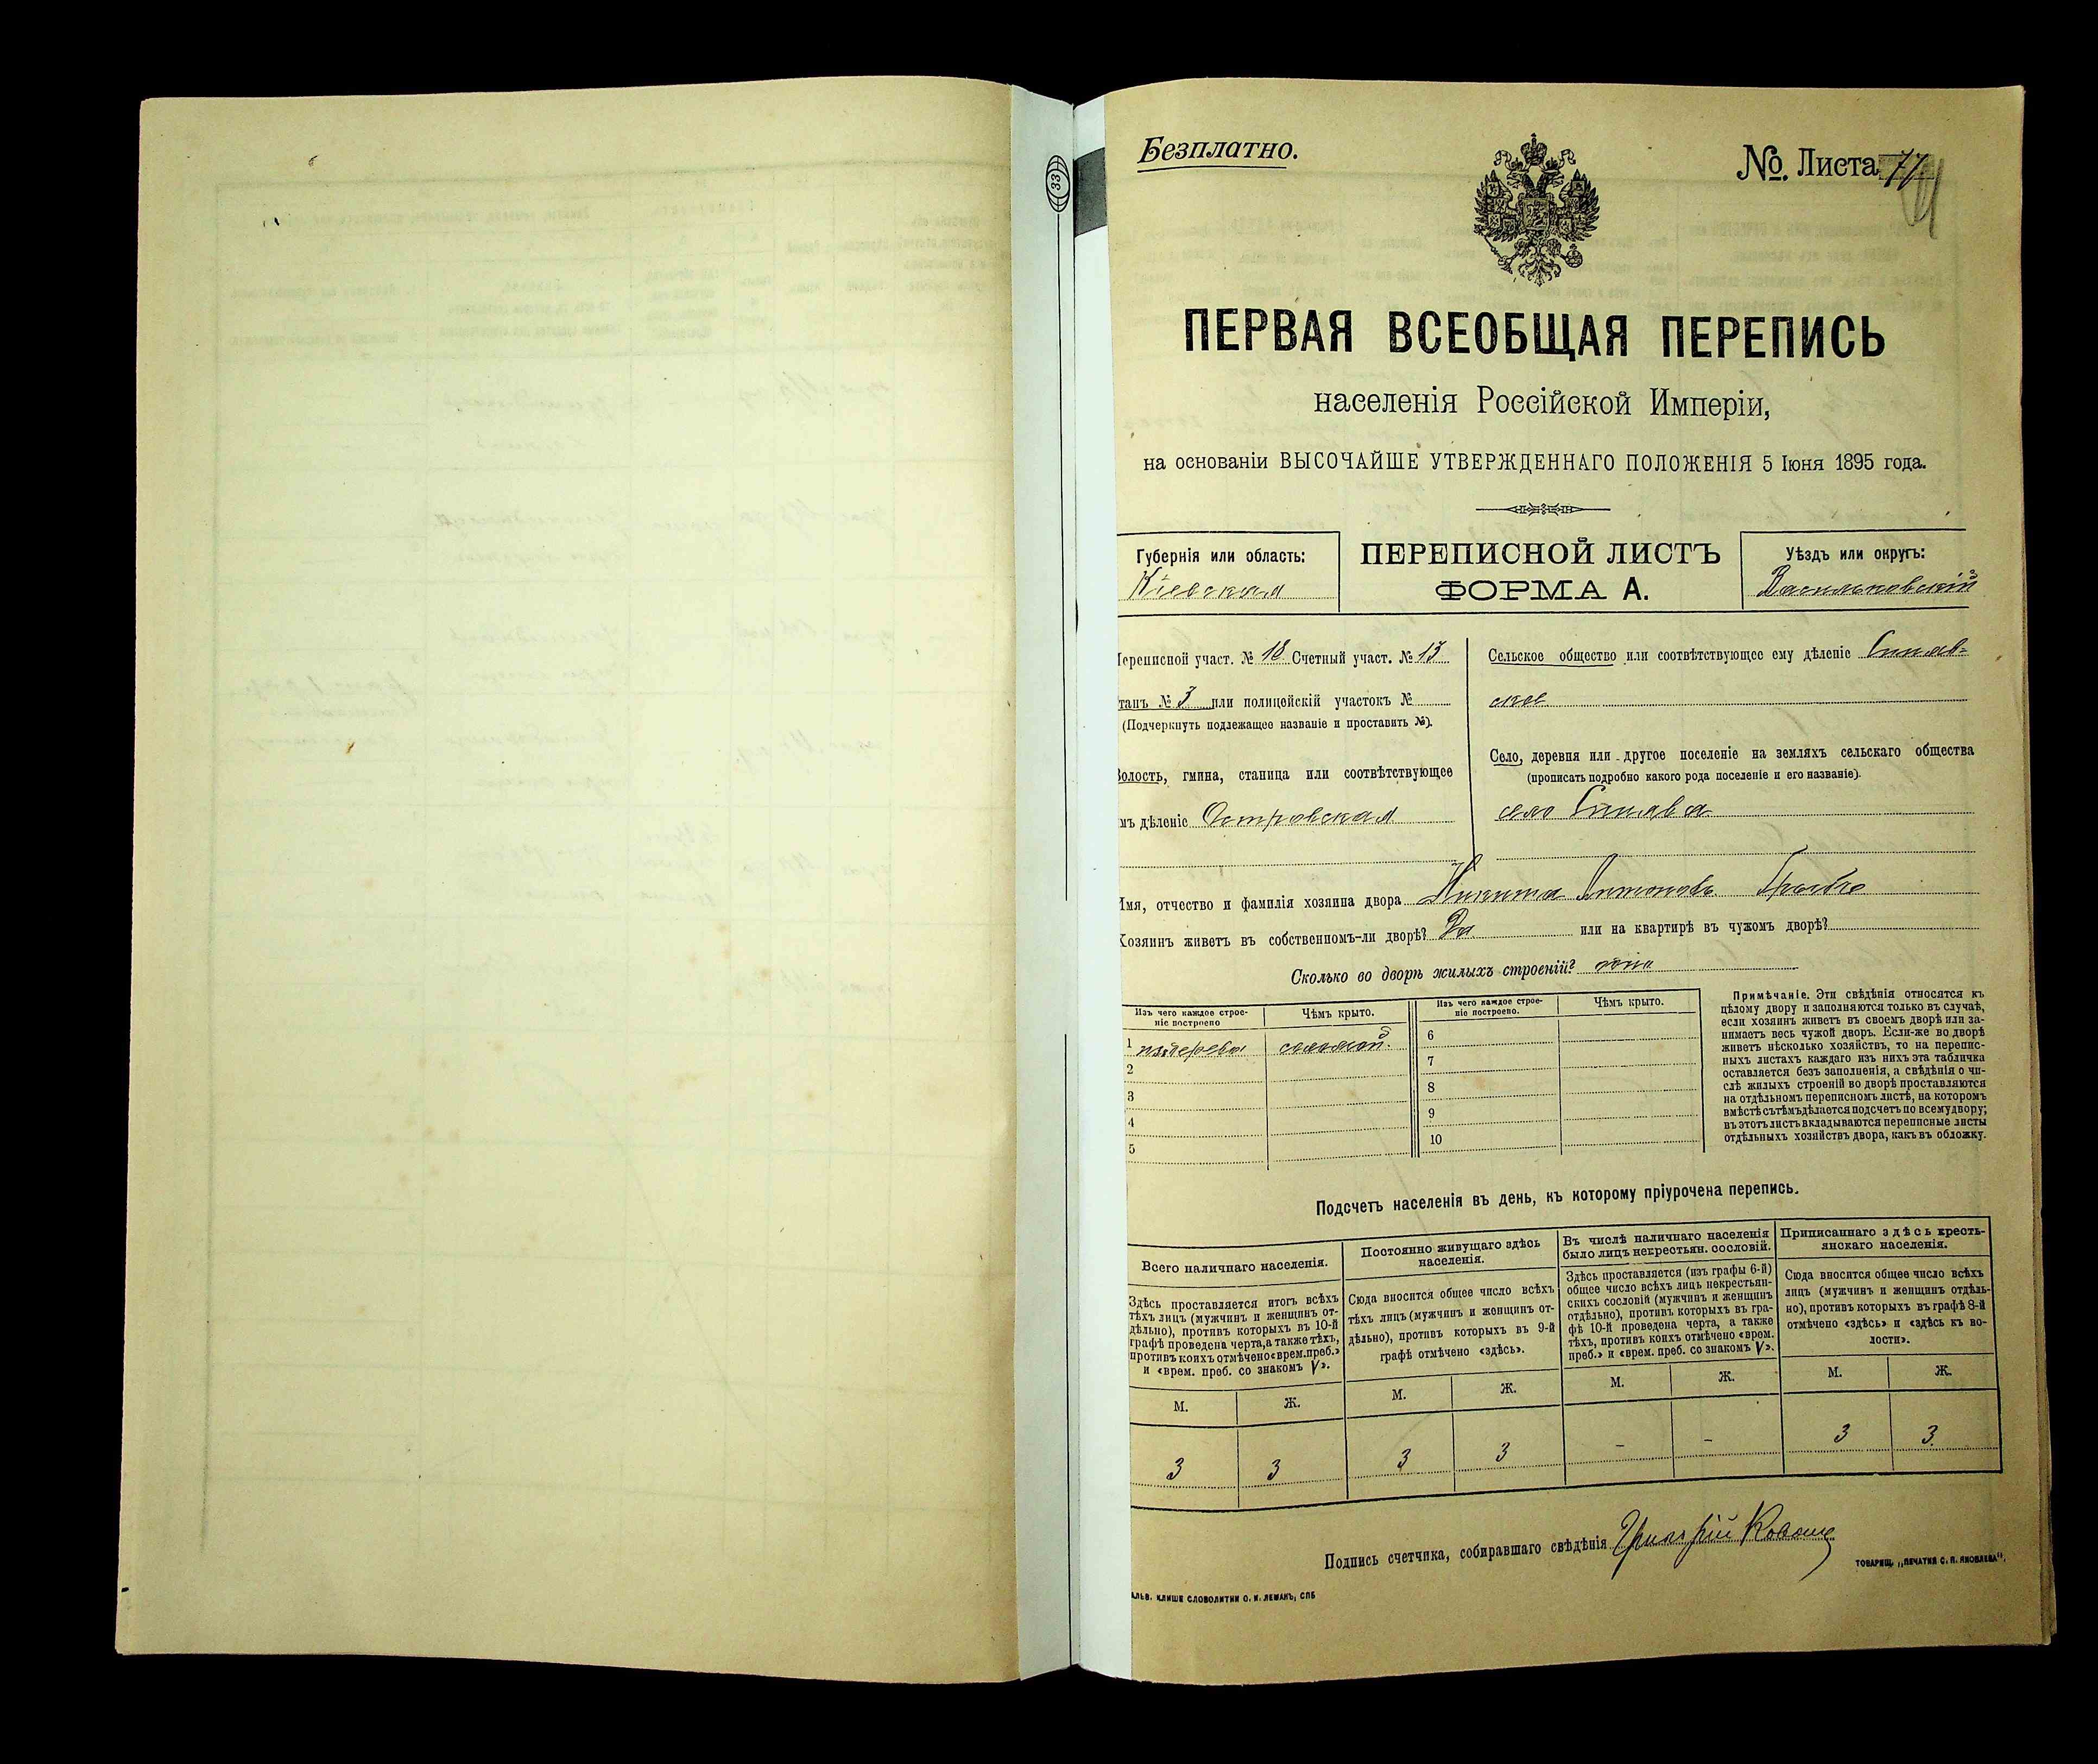 Безплатно.
№. Листа 77
33
ПЕРВАЯ ВСЕОБЩАЯ ПЕРЕПИСЬ
населенія Россійской Имперіи,
на основаніи ВЫСОЧАЙШЕ УТВЕРЖДЕННАГО ПОЛОЖЕНІЯ 5 Іюня 1895 года.
Губернія или область:
Кіевская
ПЕРЕПИСНОЙ ЛИСТЪ
ФОРМА А.
Уѣздъ или округъ:
Васильковскій
Переписной участ. № 18 Счетный участ. № 13
Станъ № 3 или полицейскій участокъ №
(Подчеркнуть подлежащее названіе и проставить №).
Волость, гмина, станица или соотвѣтствующее
имъ дѣленіе Островская
Сельское общество или соотвѣтствующее ему дѣленіе Синяв-
ское
Село, деревня или другое поселеніе на земляхъ сельскаго общества
(прописать подробно какого рода поселеніе и его названіе).
село Синява
Имя, отчество и фамилія хозяина двора Никита Антоновъ
Хозяинъ живетъ въ собственномъ-ли дворѣ? Да или на квартирѣ въ чужомъ дворѣ?
Сколько во дворѣ жилыхъ строеній? одно
Изъ чего каждое строе-
ніе построено
Чѣмъ крыто.
Изъ чего каждое строе-
ніе построено.
Чѣмъ крыто.
1 из дерева соломой.
2
3
4
5
6
7
8
9
10
Примѣчаніе. Эти свѣдѣнія относятся къ
цѣлому двору и заполняются только въ случаѣ,
если хозяинъ живетъ въ своемъ дворѣ или за-
нимаетъ весь чужой дворъ. Если-же во дворѣ
живетъ нѣсколько хозяйствъ, то на перепис-
ныхъ листахъ каждаго изъ нихъ эта табличка
оставляется безъ заполненія, а свѣдѣнія о чи-
слѣ жилыхъ строеній во дворѣ проставляются
на отдѣльномъ переписномъ листѣ, на которомъ
вмѣстѣ сътѣмъ дѣлается подсчетъ по всему двору;
въ этотъ листъ вкладываются переписные листы
отдѣльныхъ хозяйствъ двора, какъ въ обложку.
Подсчетъ населенія въ день, къ которому пріурочена перепись.
Всего наличнаго населенія.
Здѣсь проставляется итогъ всѣхъ
тѣхъ лицъ (мужчинъ и женщинъ от-
дѣльно), противъ которыхъ въ 10-й
графѣ проведена черта, а также тѣхъ,
противъ коихъ отмѣчено «врем. преб.»
и «врем. преб. со знакомъ V».
Постоянно живущаго здѣсь
населенія.
Сюда вносится общее число всѣхъ
тѣхъ лицъ (мужчинъ и женщинъ от-
дѣльно), противъ которыхъ въ 9-й
графѣ отмѣчено «здѣсь».
Въ числѣ наличнаго населенія
было лицъ некрестьян. сословій.
Здѣсь проставляется (изъ графы 6-й)
общее число всѣхъ лицъ некрестьян-
скихъ сословій (мужчинъ и женщинъ
отдѣльно), противъ которыхъ въ гра-
фѣ 10-й проведена черта, а также
тѣхъ, противъ коихъ отмѣчено «врем.
преб.» и «врем. преб. со знакомъ V».
Приписаннаго здѣсь кресть-
янскаго населенія.
Сюда вносится общее число всѣхъ
лицъ (мужчинъ и женщинъ отдѣль-
но), противъ которыхъ въ графѣ 8-й
отмѣчено «здѣсь» и «здѣсь къ во-
лости».
М. Ж. М. Ж. М. Ж. М. Ж.
3 3 3 3 - - 3 3
Подпись счетчика, собиравшаго свѣдѣнія Григорій
ТОВАРИЩ. „ПЕЧАТНЯ С. П. ЯКОВЛЕВА“.
ГАЛЬВ. КЛИШЕ СЛОВОЛИТНИ О. И. ЛЕМАНЪ, СПБ